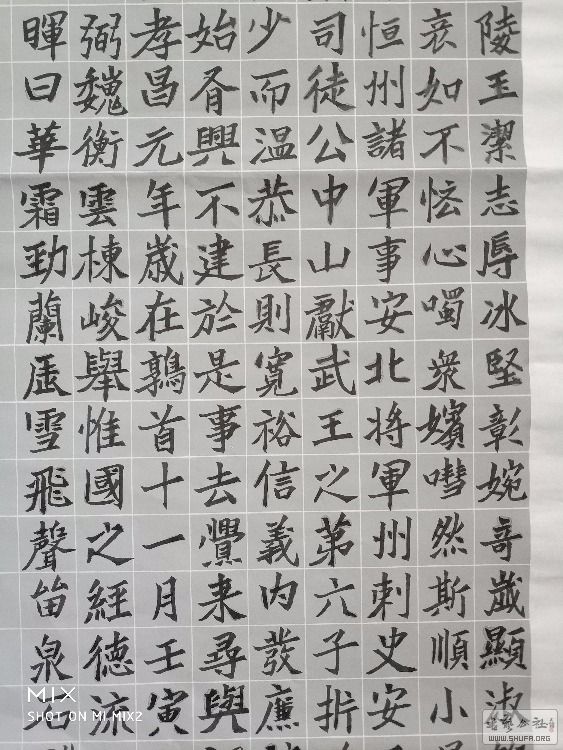 陵玉潔志厲冰堅彰婉奇歲顯淑
哀如不怰心囑衆嬪嘒然斯順小
恒州諸軍事安北將軍州刺史安
司徒公中山獻武王之第六子折
少而温恭長則寬裕信義内發廉
始有興不建於是事去釁来尋與
孝昌元年歲在鶉首十一月壬寅
弼魏衡雲棟峻舉惟國之經德流
暉曰華霜勁蘭扆雪飛聲笛泉石
MIX
SHOT ON MI MIX2
WWW.SHUFA.ORG